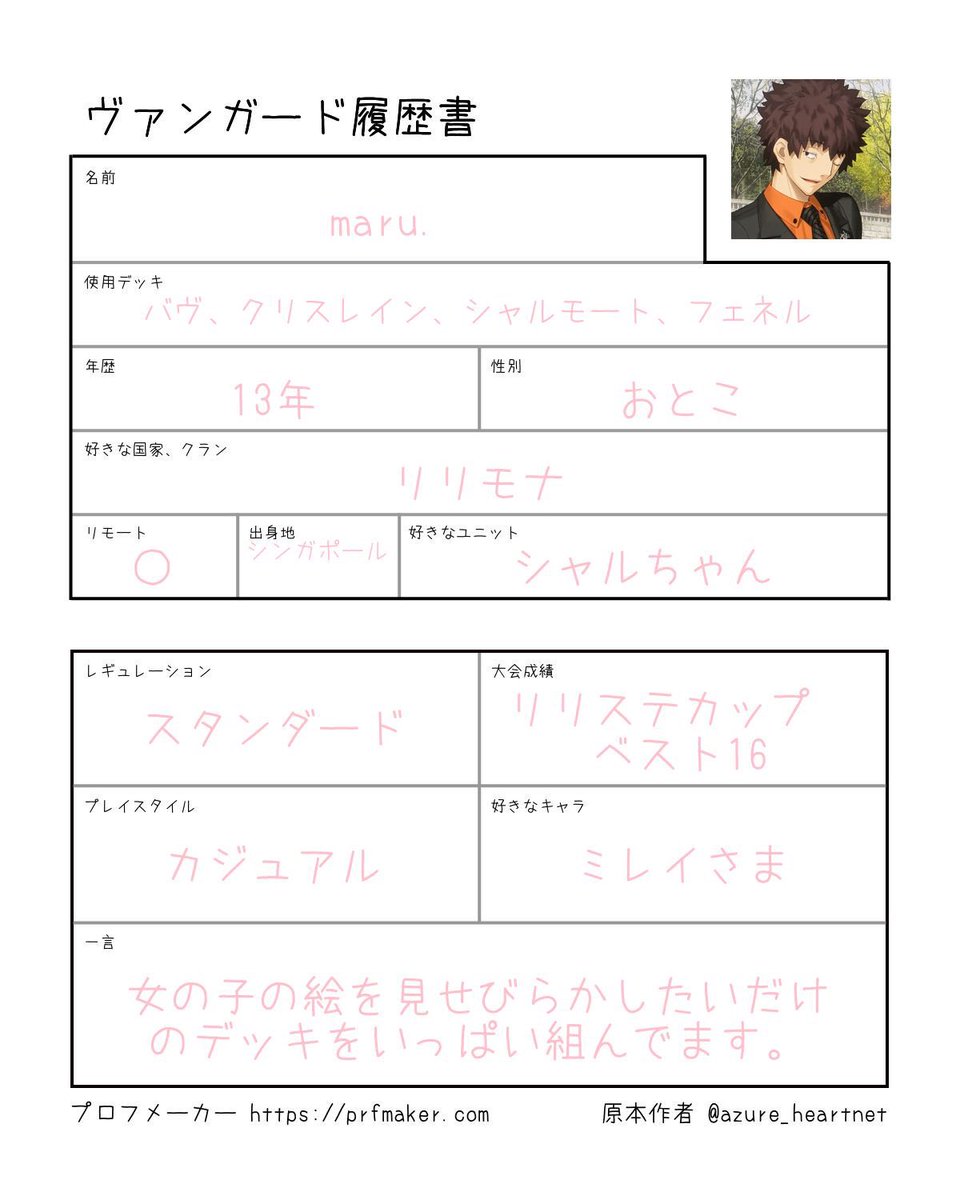 ヴァンガード履歴書
名前
maru.
使用デッキ
バヴ、クリスレイン、シャルモート、フェネル
年歴
13年
性別
おとこ
好きな国家、クラン
リリモナ
リモート
○
出身地
シンガポール
好きなユニット
シャルちゃん
レギュレーション
スタンダード
大会成績
リリステカップ
ベスト16
プレイスタイル
カジュアル
好きなキャラ
ミレイさま
一言
女の子の絵を見せびらかしたいだけ
のデッキをいっぱい組んでます。
プロフメーカー https://prfmaker.com
原本作者 @azure_heartnet